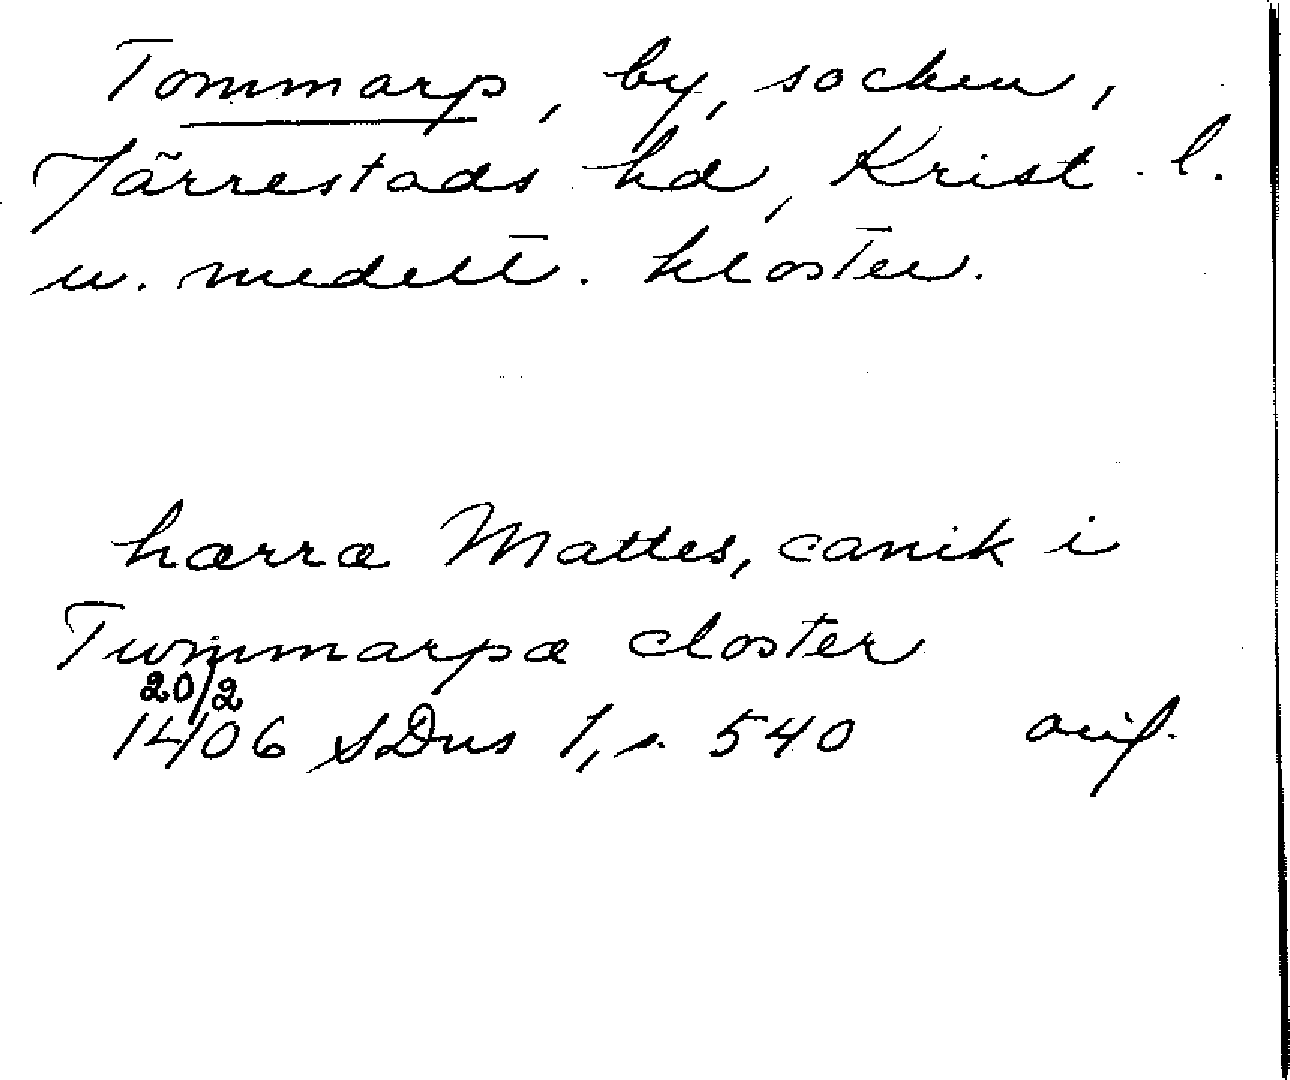 Tommarp, by, socken,
Järrestads hd, Krist. l.
u. medelt. kloster.
hærræ Mattes, canik i
Tummarpæ closter
20/2
1406 SDns 1, s. 540